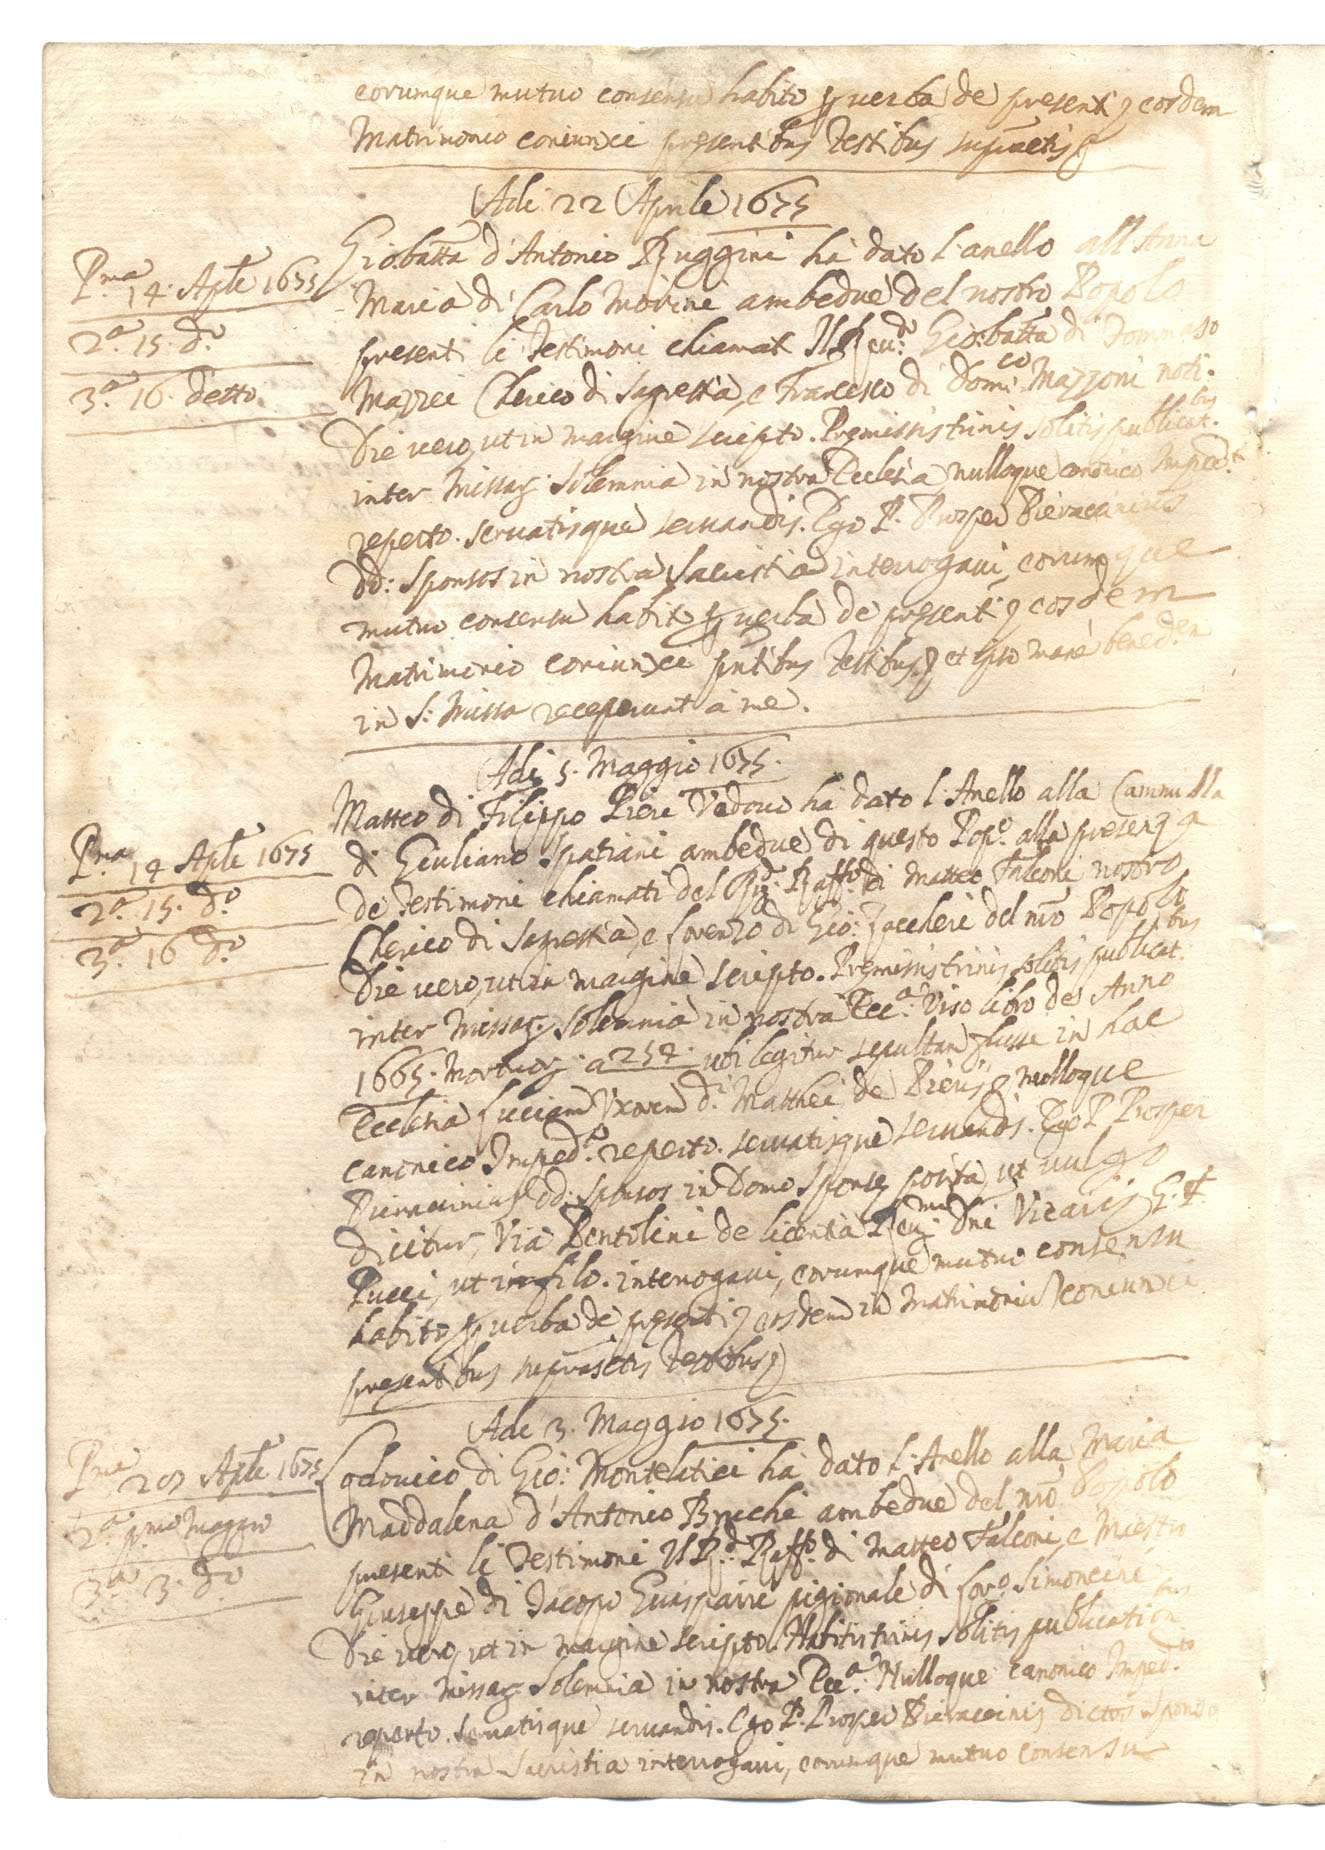 eorumque mutuo consensu habito p verba de presenti, eosdem
Matrimonio coniunxi presentibus Testibus supradictis
Adi 22 Aprile 1675
Pma 14. Aple 1675
2.a 15. do
3.a 16. detto
Giobatta d'Antonio Ruggini ha dato l'anello all'Anna
Maria di Carlo Morini ambedue del nostro Popolo
presenti li Testimoni chiamati Il Reu.do Gio:batta di Dommaso
Mazzei Cherico di Sagrestia, e Francesco di Dom.co Mazzoni noti.
Die vero, ut in margine scripto. Premissis trinis solitis publicat.bus
inter Missar. Solemnia in nostra Ecclesia nulloque canonico Imped.to
reperto. seruatisque seruandis. Ego P. Prosper Pieraccinius
dd: Sponsos in nostra Sacristia interrogaui, eorumque
mutuo consensu habito p uerba de presenti, eosdem
Matrimonio coniunxi pntibus Testibus, et ipso mane bened.em
in S. Missa receperunt a me.
Adi 5. Maggio 1675.
Pma 14 Aple 1675
2.a 15. do
3.a 16 do
Matteo di Filippo Pieri Vedovo ha dato l'Anello alla Cammilla
di Giuliano Spatiani ambedue di questo Pop.o alla presenza
de Testimoni chiamati del R.do Raff.o di Matteo Falconi nostro
Cherico di Sagrestia, e Lorenzo di Gio: Zaccheri del nro Popolo
Die vero, ut in margine scripto. Premissis trinis solitis publicat.bus
inter Missar. Solemnia in nostra Ecc.a Viso libro de Anno
1665. Mortuor. a 254. ubi legitur sepultam fuisse in hac
Ecclesia Luciam Uxorem d.i Matthei de Pieris, nulloque
canonico Imped.o reperto. seruatisque seruandis. Ego P. Prosper
Pieraccinius dd: Sponsos in Domo Sponse posita, ut vulgo
dicitur, Via Pentolini de licentia Reu.mi Dni Vicarij G.
Pucci, ut in filo. interrogaui, eorumque mutuo consensu
habito p uerba de presenti, eosdem in Matrimonium coniunxi
presentibus suprascritis Testibus
Adi 3. Maggio 1675.
Pma 20 Aple 1675
2.a p.mo Maggio
3.a 3. do
Lodouico di Gio: Montelatici ha dato l'Anello alla Maria
Maddalena d'Antonio Bruchi ambedue del nro Popolo
presenti li Testimoni Il R.do Raff.o di Matteo Falconi, e Maestro
Giuseppe di Jacopo Guasparri pigionale di Lor.o Simoncini
Die vero, ut in margine scripto. Habitis trinis solitis publicationibus
inter Missar. Solemnia in nostra Ecc.a Nulloque canonico Imped.to
reperto. seruatisque seruandis. Ego P. Prosper Pieraccinis dictos Sponsos
in nostra Sacristia interrogaui, eorumque mutuo consensu